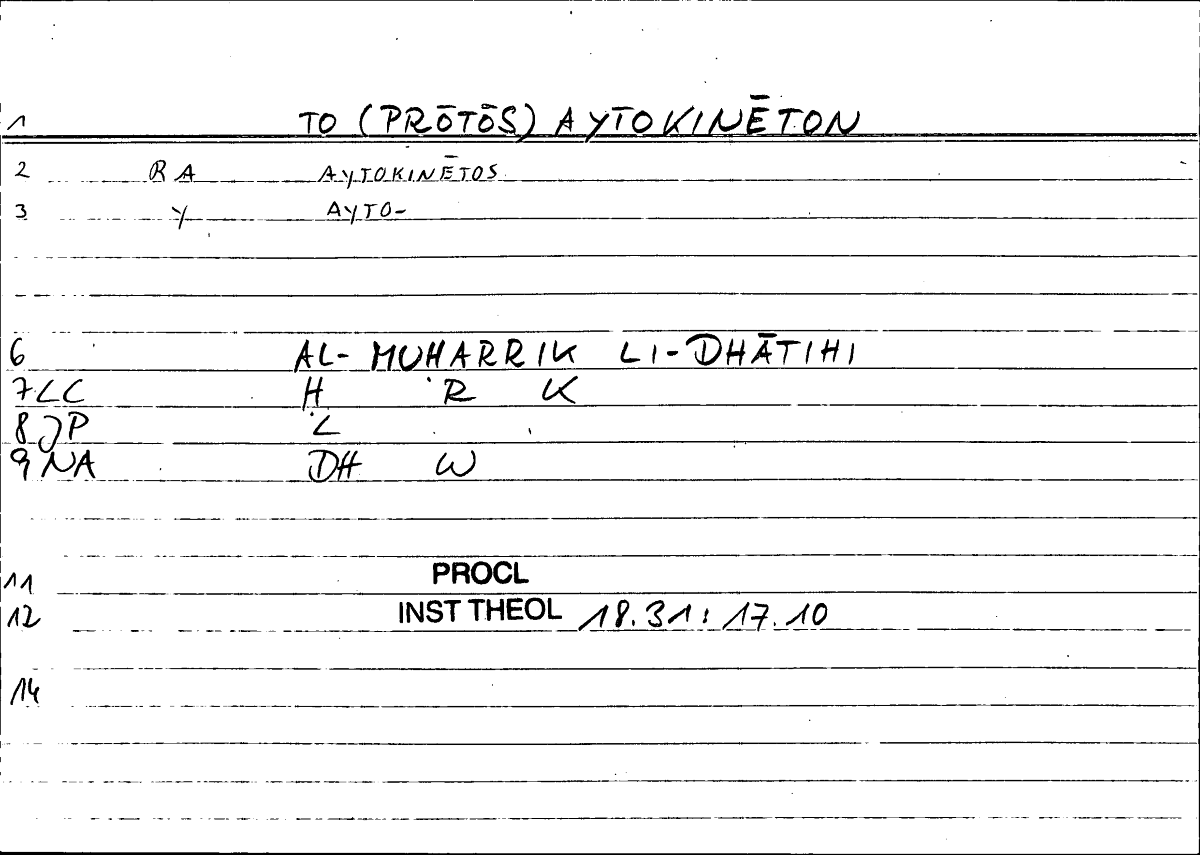 1 TO (PRŌTŌS) AYTOKINĒTON
2 RA AYTOKINĒTOS
3 Y AYTO-
6 AL-MUHARRIK LI-DHĀTIHI
7 LC H R K
8 JP L
9 NA DH W
11 PROCL
12 INST THEOL 18.31 : 17.10
14